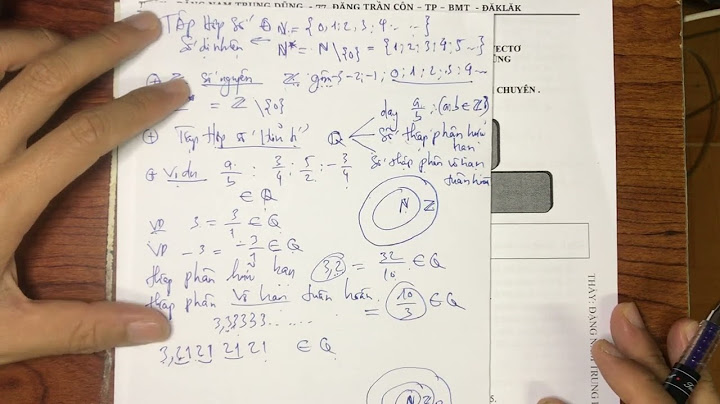 ĐẶNG NAM TRUNG DŨNG - 77 ĐẶNG TRẦN CÔN - TP - BMT - ĐĂKLĂK
Tập Hợp Số ⊕ N = {0;1;2;3;4...}
Số tự nhiên ← N* = N \{0} = {1;2;3;4;5...}
⊕ Số nguyên Z gồm -2;-1; 0;1;2;3;4...
= Z \{0}
⊕ Tập Hợp số "hữu tỉ" Q
dạng a/b ; (a;b ∈ Z)
số thập phân hữu hạn
Số thập phân vô hạn
tuần hoàn
⊕ Ví dụ a/b : 3/4 ; 5/2 ; -3/4
∈ Q
N Z
VD 3 = 3/1 ∈ Q
VD -3 = -3/1 ∈ Q
thập phân hữu hạn 3,2 = 32/10 ∈ Q
thập phân vô hạn tuần hoàn = 10/3 ∈ Q
3,33333......
3,21 21 21 21 ∈ Q
N Z
VECTƠ
DŨNG
CHUYÊN .
THẦY: ĐẶNG NAM TRUNG
5.